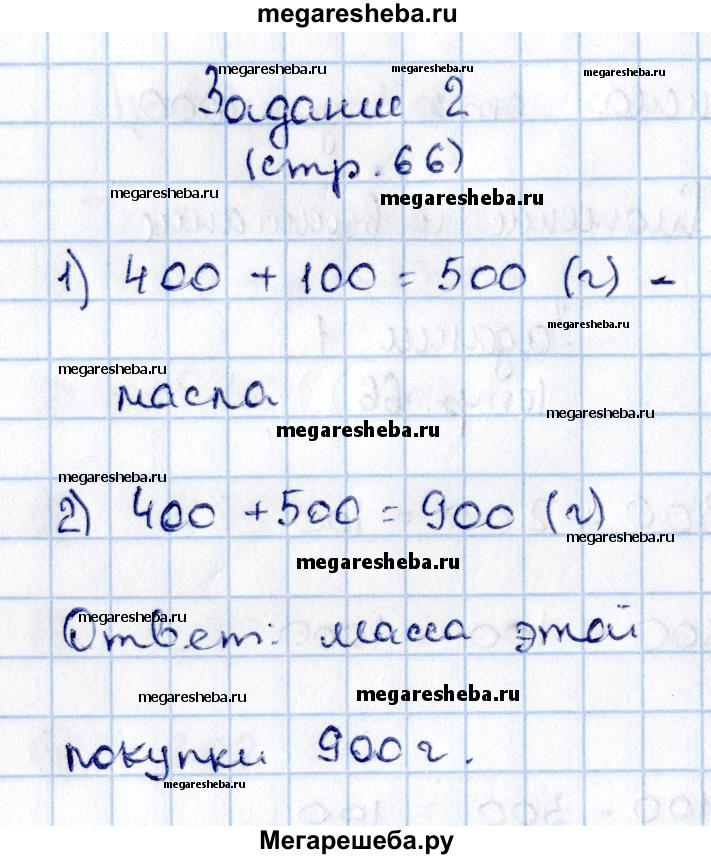 megaresheba.ru
megaresheba.ru megaresheba.ru megaresheba.ru
Задание 2
(стр. 66)
megaresheba.ru megaresheba.ru
1) 400 + 100 = 500 (г) -
megaresheba.ru
megaresheba.ru
масла
megaresheba.ru
megaresheba.ru
megaresheba.ru
2) 400 + 500 = 900 (г)
megaresheba.ru
megaresheba.ru
megaresheba.ru
Ответ: масса этой
megaresheba.ru megaresheba.ru
покупки 900 г.
megaresheba.ru
Мегарешеба.ру